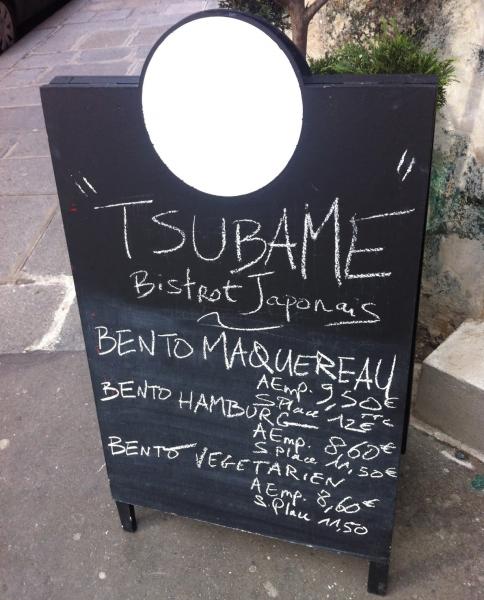 "TSUBAME"
Bistrot Japonais
BENTO MAQUEREAU
A Emp. 9,50€
S. Place 12€ TTC
BENTO HAMBURG
A Emp. 8,60€
S. Place 11,50€
BENTO VEGETARIEN
A Emp. 8,60€
S. Place 11,50